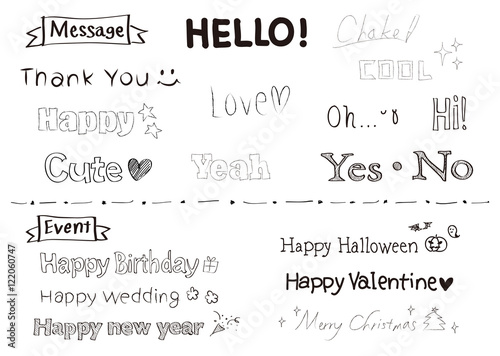 Message
HELLO!
Chake!!
COOL
Thank You
Love
Happy
Oh...
Hi!
Cute
Yeah
Yes・No
Event
Happy Birthday
Happy Halloween
Happy Wedding
Happy Valentine
Happy new year
Merry Christmas
Adobe Stock | #122060747